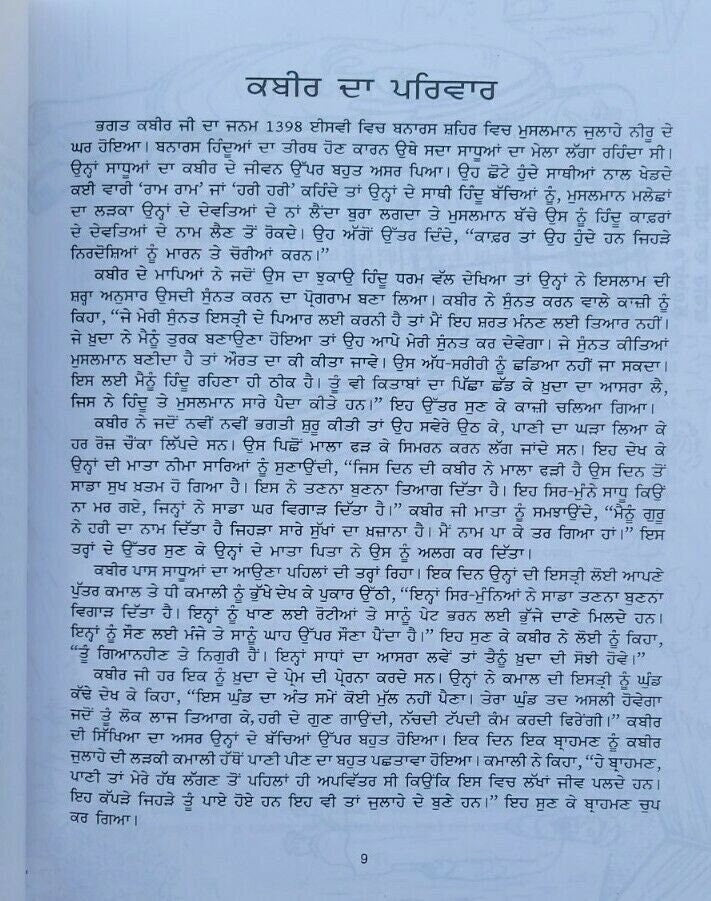 ਕਬੀਰ ਦਾ ਪਰਿਵਾਰ
ਭਗਤ ਕਬੀਰ ਜੀ ਦਾ ਜਨਮ 1398 ਈਸਵੀ ਵਿਚ ਬਨਾਰਸ ਸ਼ਹਿਰ ਵਿਚ ਮੁਸਲਮਾਨ ਜੁਲਾਹੇ ਨੀਰੂ ਦੇ
ਘਰ ਹੋਇਆ। ਬਨਾਰਸ ਹਿੰਦੂਆਂ ਦਾ ਤੀਰਥ ਹੋਣ ਕਾਰਨ ਉਥੇ ਸਦਾ ਸਾਧੂਆਂ ਦਾ ਮੇਲਾ ਲੱਗਾ ਰਹਿੰਦਾ ਸੀ।
ਉਨ੍ਹਾਂ ਸਾਧੂਆਂ ਦਾ ਕਬੀਰ ਦੇ ਜੀਵਨ ਉੱਪਰ ਬਹੁਤ ਅਸਰ ਪਿਆ। ਉਹ ਛੋਟੇ ਹੁੰਦੇ ਸਾਥੀਆਂ ਨਾਲ ਖੇਡਦੇ
ਕਈ ਵਾਰੀ ‘ਰਾਮ ਰਾਮ’ ਜਾਂ ‘ਹਰੀ ਹਰੀ’ ਕਹਿੰਦੇ ਤਾਂ ਉਨ੍ਹਾਂ ਦੇ ਸਾਥੀ ਹਿੰਦੂ ਬੱਚਿਆਂ ਨੂੰ, ਮੁਸਲਮਾਨ ਮਲੇਛਾਂ
ਦਾ ਲੜਕਾ ਉਨ੍ਹਾਂ ਦੇ ਦੇਵਤਿਆਂ ਦੇ ਨਾਂ ਲੈਂਦਾ ਬੁਰਾ ਲਗਦਾ ਤੇ ਮੁਸਲਮਾਨ ਬੱਚੇ ਉਸ ਨੂੰ ਹਿੰਦੂ ਕਾਫ਼ਰਾਂ
ਦੇ ਦੇਵਤਿਆਂ ਦੇ ਨਾਮ ਲੈਣ ਤੋਂ ਰੋਕਦੇ। ਉਹ ਅੱਗੋਂ ਉੱਤਰ ਦਿੰਦੇ, “ਕਾਫ਼ਰ ਤਾਂ ਉਹ ਹੁੰਦੇ ਹਨ ਜਿਹੜੇ
ਨਿਰਦੋਸ਼ਿਆਂ ਨੂੰ ਮਾਰਨ ਤੇ ਚੋਰੀਆਂ ਕਰਨ।”
ਕਬੀਰ ਦੇ ਮਾਪਿਆਂ ਨੇ ਜਦੋਂ ਉਸ ਦਾ ਝੁਕਾਉ ਹਿੰਦੂ ਧਰਮ ਵੱਲ ਦੇਖਿਆ ਤਾਂ ਉਨ੍ਹਾਂ ਨੇ ਇਸਲਾਮ ਦੀ
ਸ਼ਰ੍ਹਾ ਅਨੁਸਾਰ ਉਸਦੀ ਸੁੰਨਤ ਕਰਨ ਦਾ ਪ੍ਰੋਗਰਾਮ ਬਣਾ ਲਿਆ। ਕਬੀਰ ਨੇ ਸੁੰਨਤ ਕਰਨ ਵਾਲੇ ਕਾਜ਼ੀ ਨੂੰ
ਕਿਹਾ, “ਜੇ ਮੇਰੀ ਸੁੰਨਤ ਇਸਤ੍ਰੀ ਦੇ ਪਿਆਰ ਲਈ ਕਰਨੀ ਹੈ ਤਾਂ ਮੈਂ ਇਹ ਸ਼ਰਤ ਮੰਨਣ ਲਈ ਤਿਆਰ ਨਹੀਂ।
ਜੇ ਖ਼ੁਦਾ ਨੇ ਮੈਨੂੰ ਤੁਰਕ ਬਣਾਉਣਾ ਹੋਇਆ ਤਾਂ ਉਹ ਆਪੇ ਮੇਰੀ ਸੁੰਨਤ ਕਰ ਦੇਵੇਗਾ। ਜੇ ਸੁੰਨਤ ਕੀਤਿਆਂ
ਮੁਸਲਮਾਨ ਬਣੀਦਾ ਹੈ ਤਾਂ ਔਰਤ ਦਾ ਕੀ ਕੀਤਾ ਜਾਵੇ। ਉਸ ਅੱਧ-ਸਰੀਰੀ ਨੂੰ ਛਡਿਆ ਨਹੀਂ ਜਾ ਸਕਦਾ।
ਇਸ ਲਈ ਮੈਨੂੰ ਹਿੰਦੂ ਰਹਿਣਾ ਹੀ ਠੀਕ ਹੈ। ਤੂੰ ਵੀ ਕਿਤਾਬਾਂ ਦਾ ਪਿੱਛਾ ਛੱਡ ਕੇ ਖ਼ੁਦਾ ਦਾ ਆਸਰਾ ਲੈ,
ਜਿਸ ਨੇ ਹਿੰਦੂ ਤੇ ਮੁਸਲਮਾਨ ਸਾਰੇ ਪੈਦਾ ਕੀਤੇ ਹਨ।” ਇਹ ਉੱਤਰ ਸੁਣ ਕੇ ਕਾਜ਼ੀ ਚਲਿਆ ਗਿਆ।
ਕਬੀਰ ਨੇ ਜਦੋਂ ਨਵੀਂ ਨਵੀਂ ਭਗਤੀ ਸ਼ੁਰੂ ਕੀਤੀ ਤਾਂ ਉਹ ਸਵੇਰੇ ਉਠ ਕੇ, ਪਾਣੀ ਦਾ ਘੜਾ ਲਿਆ ਕੇ
ਹਰ ਰੋਜ਼ ਚੌਂਕਾ ਲਿੱਪਦੇ ਸਨ। ਉਸ ਪਿਛੋਂ ਮਾਲਾ ਫੜ ਕੇ ਸਿਮਰਨ ਕਰਨ ਲੱਗ ਜਾਂਦੇ ਸਨ। ਇਹ ਦੇਖ ਕੇ
ਉਨ੍ਹਾਂ ਦੀ ਮਾਤਾ ਨੀਮਾ ਸਾਰਿਆਂ ਨੂੰ ਸੁਣਾਉਂਦੀ, “ਜਿਸ ਦਿਨ ਦੀ ਕਬੀਰ ਨੇ ਮਾਲਾ ਫੜੀ ਹੈ ਉਸ ਦਿਨ ਤੋਂ
ਸਾਡਾ ਸੁਖ ਖ਼ਤਮ ਹੋ ਗਿਆ ਹੈ। ਇਸ ਨੇ ਤਣਨਾ ਬੁਨਣਾ ਤਿਆਗ ਦਿੱਤਾ ਹੈ। ਇਹ ਸਿਰ-ਮੁੰਨੇ ਸਾਧੂ ਕਿਉਂ
ਨਾ ਮਰ ਗਏ, ਜਿਨ੍ਹਾਂ ਨੇ ਸਾਡਾ ਘਰ ਵਿਗਾੜ ਦਿੱਤਾ ਹੈ।” ਕਬੀਰ ਜੀ ਮਾਤਾ ਨੂੰ ਸਮਝਾਉਂਦੇ, “ਮੈਨੂੰ ਗੁਰੂ
ਨੇ ਹਰੀ ਦਾ ਨਾਮ ਦਿੱਤਾ ਹੈ ਜਿਹੜਾ ਸਾਰੇ ਸੁੱਖਾਂ ਦਾ ਖ਼ਜ਼ਾਨਾ ਹੈ। ਮੈਂ ਨਾਮ ਪਾ ਕੇ ਤਰ ਗਿਆ ਹਾਂ।” ਇਸ
ਤਰ੍ਹਾਂ ਦੇ ਉੱਤਰ ਸੁਣ ਕੇ ਉਨ੍ਹਾਂ ਦੇ ਮਾਤਾ ਪਿਤਾ ਨੇ ਉਸ ਨੂੰ ਅਲਗ ਕਰ ਦਿੱਤਾ।
ਕਬੀਰ ਪਾਸ ਸਾਧੂਆਂ ਦਾ ਆਉਣਾ ਪਹਿਲਾਂ ਦੀ ਤਰ੍ਹਾਂ ਰਿਹਾ। ਇਕ ਦਿਨ ਉਨ੍ਹਾਂ ਦੀ ਇਸਤ੍ਰੀ ਲੋਈ ਆਪਣੇ
ਪੁੱਤਰ ਕਮਾਲ ਤੇ ਧੀ ਕਮਾਲੀ ਨੂੰ ਭੁੱਖੇ ਦੇਖ ਕੇ ਪੁਕਾਰ ਉੱਠੀ, “ਇਨ੍ਹਾਂ ਸਿਰ-ਮੁੰਨਿਆਂ ਨੇ ਸਾਡਾ ਤਣਨਾ ਬੁਨਣਾ
ਵਿਗਾੜ ਦਿੱਤਾ ਹੈ। ਇਨ੍ਹਾਂ ਨੂੰ ਖਾਣ ਲਈ ਰੋਟੀਆਂ ਤੇ ਸਾਨੂੰ ਪੇਟ ਭਰਨ ਲਈ ਭੁੱਜੇ ਦਾਣੇ ਮਿਲਦੇ ਹਨ।
ਇਨ੍ਹਾਂ ਨੂੰ ਸੌਣ ਲਈ ਮੰਜੇ ਤੇ ਸਾਨੂੰ ਘਾਹ ਉੱਪਰ ਸੌਣਾ ਪੈਂਦਾ ਹੈ।” ਇਹ ਸੁਣ ਕੇ ਕਬੀਰ ਨੇ ਲੋਈ ਨੂੰ ਕਿਹਾ,
“ਤੂੰ ਗਿਆਨਹੀਣ ਤੇ ਨਿਗੁਰੀ ਹੈਂ। ਇਨ੍ਹਾਂ ਸਾਧਾਂ ਦਾ ਆਸਰਾ ਲਵੇਂ ਤਾਂ ਤੈਨੂੰ ਖ਼ੁਦਾ ਦੀ ਸੋਝੀ ਹੋਵੇ।”
ਕਬੀਰ ਜੀ ਹਰ ਇਕ ਨੂੰ ਖ਼ੁਦਾ ਦੇ ਪ੍ਰੇਮ ਦੀ ਪ੍ਰੇਰਨਾ ਕਰਦੇ ਸਨ। ਉਨ੍ਹਾਂ ਨੇ ਕਮਾਲ ਦੀ ਇਸਤ੍ਰੀ ਨੂੰ ਘੁੰਡ
ਕੱਢੇ ਦੇਖ ਕੇ ਕਿਹਾ, “ਇਸ ਘੁੰਡ ਦਾ ਅੰਤ ਸਮੇਂ ਕੋਈ ਮੁੱਲ ਨਹੀਂ ਪੈਣਾ। ਤੇਰਾ ਘੁੰਡ ਤਦ ਅਸਲੀ ਹੋਵੇਗਾ
ਜਦੋਂ ਤੂੰ ਲੋਕ ਲਾਜ ਤਿਆਗ ਕੇ, ਹਰੀ ਦੇ ਗੁਣ ਗਾਉਂਦੀ, ਨੱਚਦੀ ਟੱਪਦੀ ਕੰਮ ਕਰਦੀ ਫਿਰੇਂਗੀ।” ਕਬੀਰ
ਦੀ ਸਿੱਖਿਆ ਦਾ ਅਸਰ ਉਨ੍ਹਾਂ ਦੇ ਬੱਚਿਆਂ ਉੱਪਰ ਬਹੁਤ ਹੋਇਆ। ਇਕ ਦਿਨ ਇਕ ਬ੍ਰਾਹਮਣ ਨੂੰ ਕਬੀਰ
ਜੁਲਾਹੇ ਦੀ ਲੜਕੀ ਕਮਾਲੀ ਹੱਥੋਂ ਪਾਣੀ ਪੀਣ ਦਾ ਬਹੁਤ ਪਛਤਾਵਾ ਹੋਇਆ। ਕਮਾਲੀ ਨੇ ਕਿਹਾ, “ਹੇ ਬ੍ਰਾਹਮਣ,
ਪਾਣੀ ਤਾਂ ਮੇਰੇ ਹੱਥ ਲੱਗਣ ਤੋਂ ਪਹਿਲਾਂ ਹੀ ਅਪਵਿੱਤਰ ਸੀ ਕਿਉਂਕਿ ਇਸ ਵਿਚ ਲੱਖਾਂ ਜੀਵ ਪਲਦੇ ਹਨ।
ਇਹ ਕੱਪੜੇ ਜਿਹੜੇ ਤੂੰ ਪਾਏ ਹੋਏ ਹਨ ਇਹ ਵੀ ਤਾਂ ਜੁਲਾਹੇ ਦੇ ਬੁਣੇ ਹਨ।” ਇਹ ਸੁਣ ਕੇ ਬ੍ਰਾਹਮਣ ਚੁਪ
ਕਰ ਗਿਆ।
9